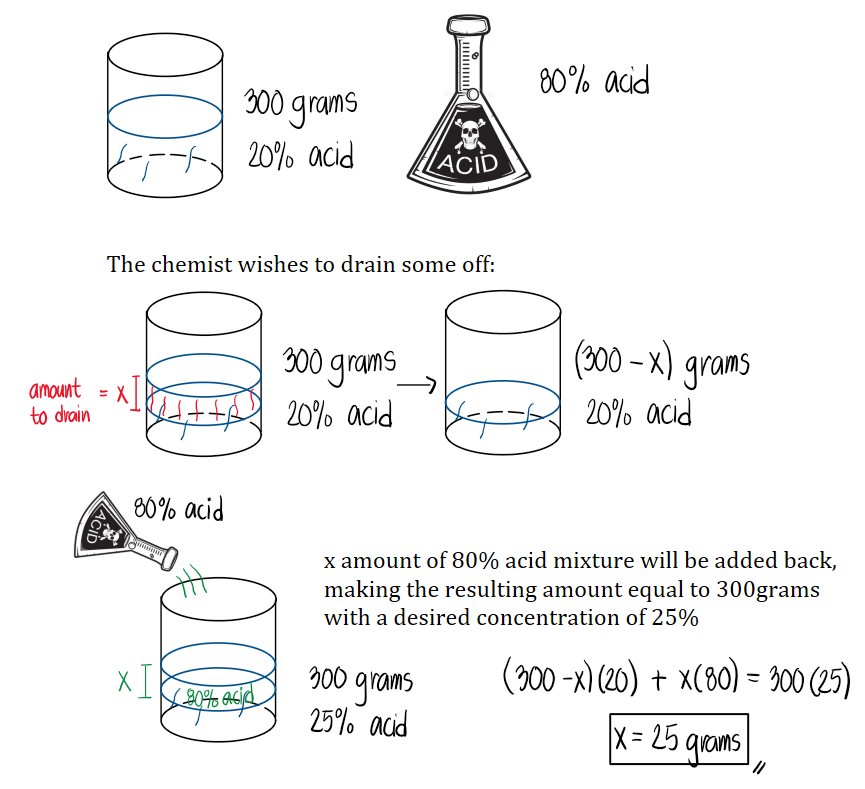 300 grams
20% acid
ACID
80% acid
The chemist wishes to drain some off:
amount
to drain
= x
300 grams
20% acid
(300 - x) grams
20% acid
ACID
80% acid
x amount of 80% acid mixture will be added back,
making the resulting amount equal to 300grams
with a desired concentration of 25%
x
80% acid
300 grams
25% acid
(300 - x)(20) + x(80) = 300(25)
x = 25 grams